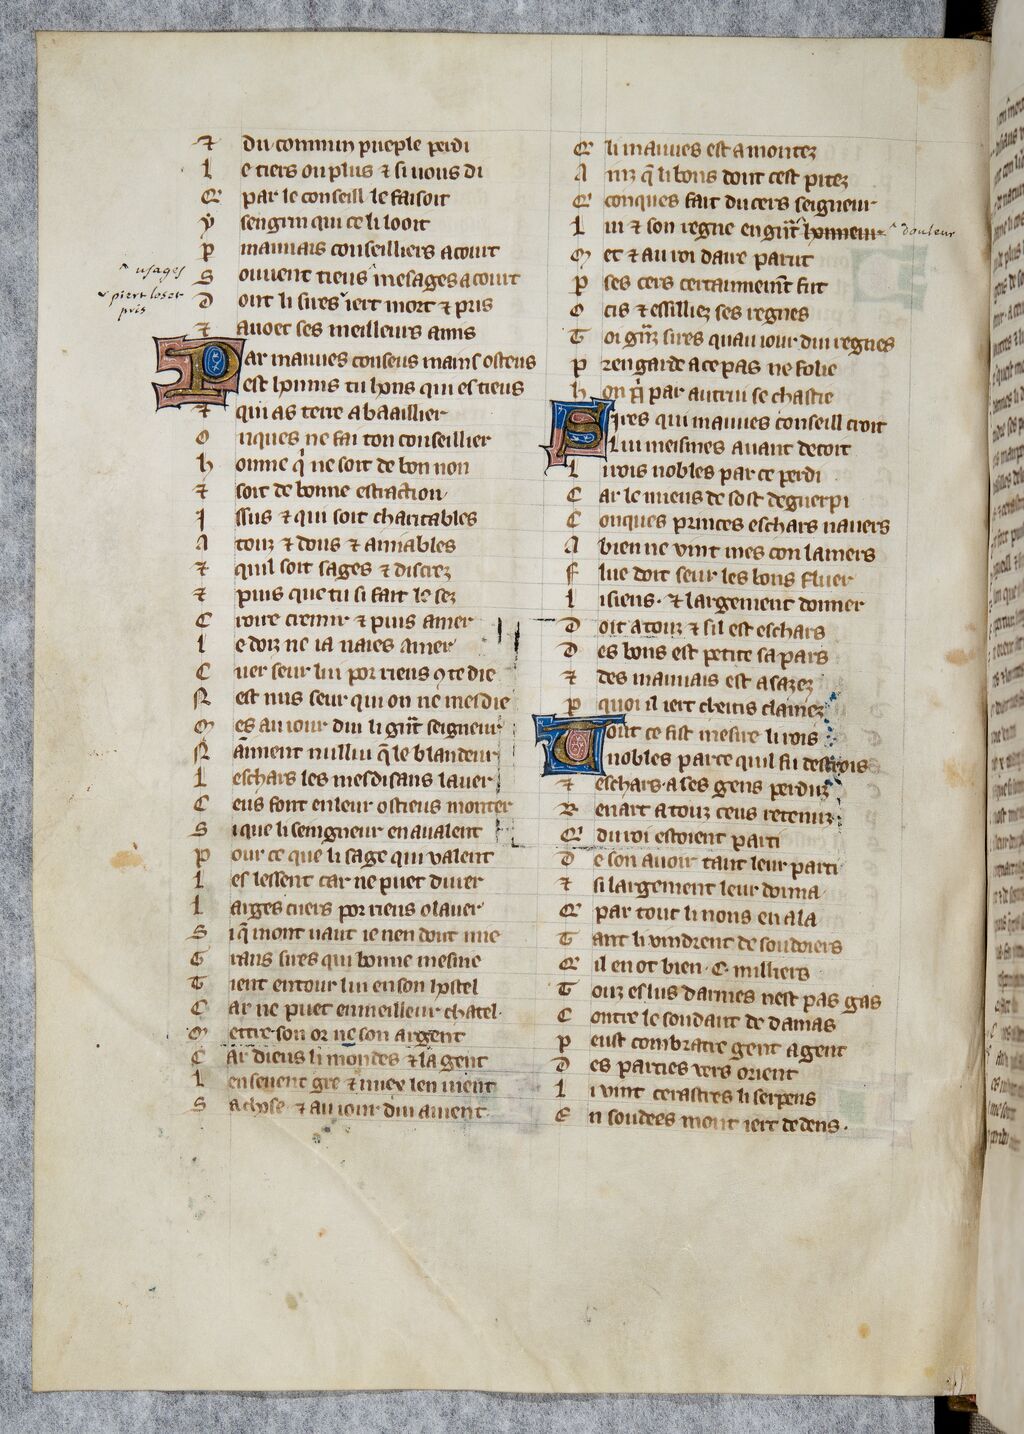 ⁊ du commun pueple perdi
L e tiers ou plus ⁊ si vous di
Q̃ par le conseill le faisoit
Y sengrin qui ce li looit
P mauuais conseilliers acourt
S ouuent tieus mesages acourt
^ usages
D ont li sires iert mort ⁊ pris
piert los et
pris
⁊ auoec ses meilleurs amis
P ar mauues conseus mains osteus
est honnis tu hons qui es tieus
⁊ qui as terre a baaillier
O nques ne fai ton conseillier
H omme q̃ ne soit de bon non
⁊ soit de bonne estraction
I ssus ⁊ qui soit charitables
A touz ⁊ dous ⁊ amiables
⁊ quil soit sages ⁊ discrez
⁊ puis que tu si fait le sez
C roire cremir ⁊ puis amer
L e doiz ne ia naies amer
C uer seur lui por riens q̄ te die
N est nus seur qui on ne mesdie
M es au iour dui li gñt seigneur
N aiment nullui q̃ le blandeur
L eschars les mesdisans lauer
C eus font en leur osteus monter
S i que li senigneur en aualent
P our ce que li sage qui valent
L es lessent car ne puet durer
L arges cuers por riens o lauer
S i q̃ mont vaut ie nen dout mie
G rans sires qui bonne mesnie
T ient entour lui en son hostel
C ar ne puet en meilleur chatel
M ettre son or ne son argent
C ar dieus li mondes ⁊ la gent
L en seuent gre ⁊ miex len vient
S achose ⁊ au iour dui auient
Q̃ li mauues est a montez
A niz q̃ li bons dont cest pitez
Q̃ conques fait du cers seigneur
L ui ⁊ son regne en gñt honneur
^ douleur
M et ⁊ au roi daire parut
P ses cers certainnemt̃ fut
O cis ⁊ essilliez ses regnes
T oi gñz sires qua u iour dui regnes
P ren garde a ce pas ne folie
H on p̃ par autrui se chastie
S ires qui mauues conseill croit
Lui meismes auant decoit
L i rois nobles par ce perdi
C ar le mieus de sost deguerpi
C onques princes eschars nauers
A bien ne vint mes con lamers
F lue doit seur les bons fluer
L i siens ⁊ largement donner
D oit a touz ⁊ sil est eschars
D es bons est petite sa pars
⁊ des mauuais est asazez
P quoi il iert cheitis clamez
T out ce fist mesire li rois
nobles parce quil fu destrois
⁊ eschars a ses gens perduz
R enart a touz ceus retenuz
Q̃ du roi estoient parti
D e son auoir tant leur parti
⁊ si largement leur donna
Q̃ par tout li nons en ala
T ant li vindrent de soudoiers
Q̃ il en ot bien · C · milliers
T ouz eslus darmes nest pas gas
C ontre le soudant de damas
P eust combratre gent a gent
D es parties vers orient
L i vint cerastres li serpens
E n soudees mout iert dedens ·